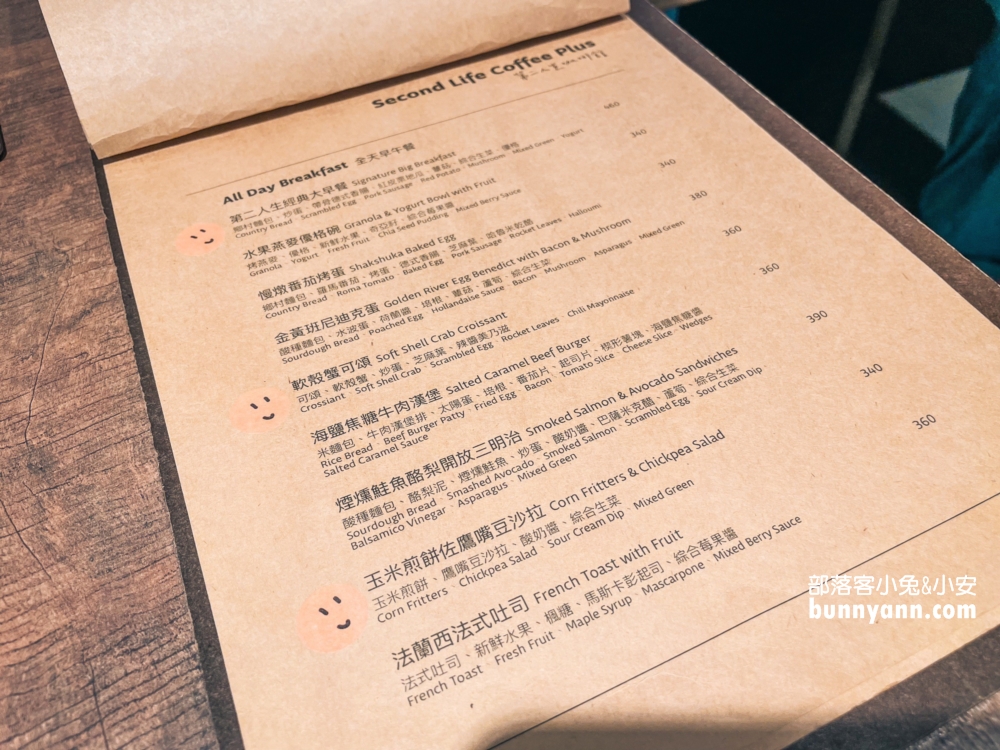 Second Life Coffee Plus
第二人生咖啡館
All Day Breakfast 全天早午餐
第二人生經典大早餐 Signature Big Breakfast 460
鄉村麵包、炒蛋、帶骨德式香腸、紅皮栗地瓜、蘑菇、綜合生菜、優格
Country Bread Scrambled Egg Pork Sausage Red Potato Mushroom Mixed Green Yogurt
水果燕麥優格碗 Granola & Yogurt Bowl with Fruit 340
烤燕麥、優格、新鮮水果、奇亞籽、綜合莓果醬
Granola Yogurt Fresh Fruit Chia Seed Pudding Mixed Berry Sauce
慢燉番茄烤蛋 Shakshuka Baked Egg 340
鄉村麵包、羅馬番茄、烤蛋、德式香腸、芝麻葉、哈魯米乾酪
Country Bread Roma Tomato Baked Egg Pork Sausage Rocket Leaves Halloumi
金黃班尼迪克蛋 Golden River Egg Benedict with Bacon & Mushroom 380
酸種麵包、水波蛋、荷蘭醬、培根、蘑菇、蘆筍、綜合生菜
Sourdough Bread Poached Egg Hollandaise Sauce Bacon Mushroom Asparagus Mixed Green
軟殼蟹可頌 Soft Shell Crab Croissant 360
可頌、軟殼蟹、炒蛋、芝麻葉、辣醬美乃滋
Crossiant Soft Shell Crab Scrambled Egg Rocket Leaves Chili Mayonnaise
海鹽焦糖牛肉漢堡 Salted Caramel Beef Burger 360
米麵包、牛肉漢堡排、太陽蛋、培根、番茄片、起司片、楔形薯塊、海鹽焦糖醬
Rice Bread Beef Burger Patty Fried Egg Bacon Tomato Slice Cheese Slice Wedges
Salted Caramel Sauce
煙燻鮭魚酪梨開放三明治 Smoked Salmon & Avocado Sandwiches 390
酸種麵包、酪梨泥、煙燻鮭魚、炒蛋、酸奶醬、巴薩米克醋、蘆筍、綜合生菜
Sourdough Bread Smashed Avocado Smoked Salmon Scrambled Egg Sour Cream Dip
Balsamico Vinegar Asparagus Mixed Green
玉米煎餅佐鷹嘴豆沙拉 Corn Fritters & Chickpea Salad 340
玉米煎餅、鷹嘴豆沙拉、酸奶醬、綜合生菜
Corn Fritters Chickpea Salad Sour Cream Dip Mixed Green
法蘭西法式吐司 French Toast with Fruit 360
法式吐司、新鮮水果、楓糖、馬斯卡彭起司、綜合莓果醬
French Toast Fresh Fruit Maple Syrup Mascarpone Mixed Berry Sauce
部落客小兔&小安
bunnyann.com